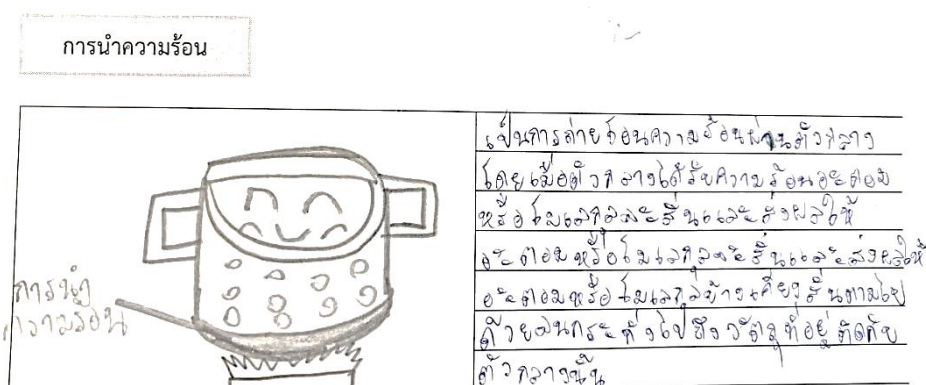 การนำความร้อน
เป็นการถ่ายโอนความร้อนผ่านตัวกลาง
โดยเมื่อตัวกลางได้รับความร้อนอะตอม
หรือโมเลกุลจะสั่นและส่งผลให้
อะตอมหรือโมเลกุลจะสั่นและส่งผลให้
อะตอมหรือโมเลกุลข้างเคียงสั่นตามไป
ด้วยจนกระทั่งไปถึงวัตถุที่อยู่ติดกับ
ตัวกลางนั้น
การนำ
ความร้อน